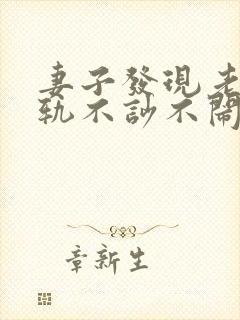 妻子發現老
軌不訬不鬧
章新生